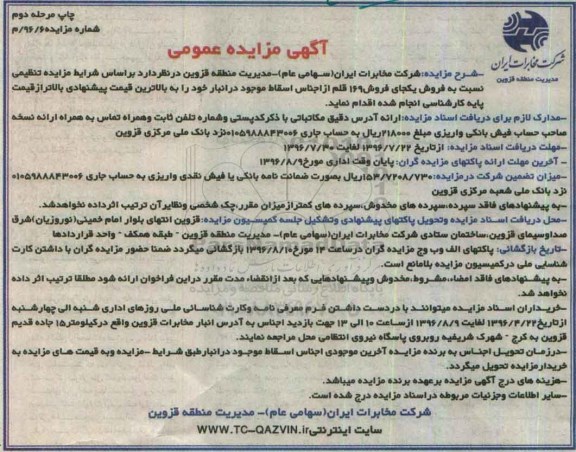 چاپ مرحله دوم
شماره مزایده۹۶/۶/م
شرکت مخابرات ایران
مدیریت منطقه قزوین
آگهی مزایده عمومی
-شرح مزایده:شرکت مخابرات ایران(سهامی عام)-مدیریت منطقه قزوین درنظردارد براساس شرایط مزایده تنظیمی
نسبت به فروش یکجای فروش۱۶۹ قلم ازاجناس اسقاط موجود درانبار خود را به بالاترین قیمت پیشنهادی بالاترازقیمت
پایه کارشناسی انجام شده اقدام نماید.
-مدارک لازم برای دریافت اسناد مزایده:ارائه آدرس دقیق مکاتباتی با ذکرکدپستی وشماره تلفن ثابت وهمراه تماس به همراه ارائه نسخه
صاحب حساب فیش بانکی واریزی مبلغ ۲۱۸۰۰۰ریال به حساب جاری ۰۱۰۵۹۸۸۸۴۳۰۰۶نزد بانک ملی مرکزی قزوین
-مهلت دریافت اسناد مزایده: ازتاریخ ۱۳۹۶/۷/۲۲ لغایت ۱۳۹۶/۷/۳۰
- آخرین مهلت ارائه پاکتهای مزایده گران: پایان وقت اداری مورخ۱۳۹۶/۸/۹
-میزان تضمین شرکت درمزایده:۱۵۴/۷۲۰۸/۷۳۰ریال بصورت ضمانت نامه بانکی یا فیش نقدی واریزی به حساب جاری ۰۱۰۵۹۸۸۸۴۳۰۰۶
نزد بانک ملی شعبه مرکزی قزوین
-به پیشنهادهای فاقد سپرده،سپرده های مخدوش،سپرده های کمترازمیزان مقرر،چک شخصی ونظایرآن ترتیب اثرداده نخواهدشد.
-محل دریافت اسناد مزایده وتحویل پاکتهای پیشنهادی وتشکیل جلسه کمیسیون مزایده: قزوین انتهای بلوار امام خمینی(نوروزیان)شرق
صداوسیمای قزوین،ساختمان ستادی شرکت مخابرات ایران(سهامی عام)- مدیریت منطقه قزوین - طبقه همکف - واحد قراردادها
-تاریخ بازگشائی: پاکتهای الف وب وج مزایده گران درساعت ۱۴ مورخ۱۳۹۶/۸/۱۰ بازگشائی میگردد ضمنا حضور مزایده گران با داشتن کارت
شناسایی ملی درکمیسیون مزایده بلامانع است.
-به پیشنهادهای فاقد امضاء،مشروط،مخدوش وپیشنهادهایی که بعد ازانقضاء مدت مقرر دراین فراخوان ارائه شود مطلقا ترتیب اثر داده
نخواهد شد.
-خریداران اسناد مزایده میتوانند با دردست داشتن فرم معرفی نامه وکارت شناسائی ملی روزهای اداری شنبه الی چهارشنبه
ازتاریخ۱۳۹۶/۴/۲۲ لغایت ۱۳۹۶/۸/۹ ازساعت ۱۰ الی ۱۳ جهت بازدید اجناس به آدرس انبار مخابرات قزوین واقع درکیلومتر۱۵ جاده قدیم
قزوین به کرج - شهرک شریفیه روبروی پاسگاه نیروی انتظامی محل مراجعه نمایند.
-درزمان تحویل اجناس به برنده مزایده آخرین موجودی اجناس اسقاط موجود درانبارطبق شرایط -مزایده وبه قیمت های مزایده به
خریدارمزایده تحویل میگردد.
-هزینه های درج آگهی مزایده برعهده برنده مزایده میباشد.
-سایر اطلاعات وجزئیات مربوطه دراسناد مزایده درج شده است.
شرکت مخابرات ایران(سهامی عام)- مدیریت منطقه قزوین
سایت اینترنتی WWW.TC-QAZVIN.ir